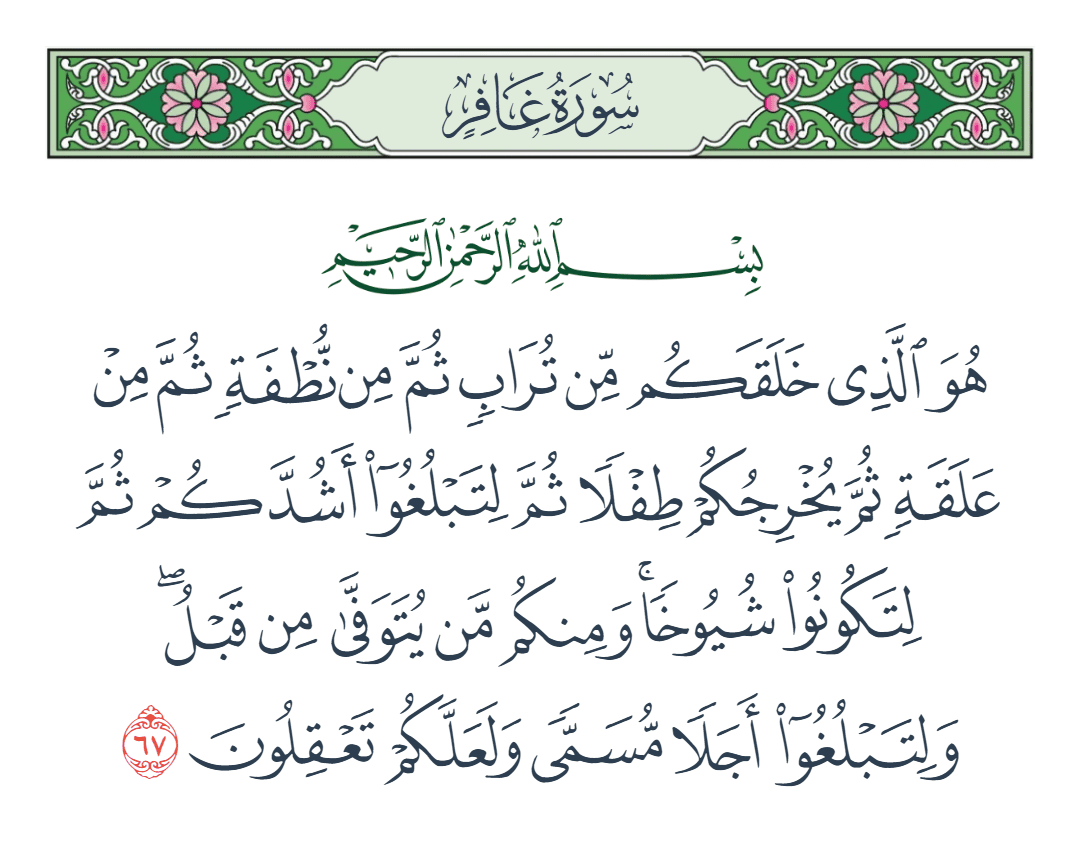 سُورَةُ غَافِرٍ
بِسْمِ ٱللَّهِ ٱلرَّحْمَٰنِ ٱلرَّحِيمِ
هُوَ ٱلَّذِى خَلَقَكُم مِّن تُرَابٍ ثُمَّ مِن نُّطْفَةٍ ثُمَّ مِنْ
عَلَقَةٍ ثُمَّ يُخْرِجُكُمْ طِفْلًا ثُمَّ لِتَبْلُغُوٓا۟ أَشُدَّكُمْ ثُمَّ
لِتَكُونُوا۟ شُيُوخًا ۚ وَمِنكُم مَّن يُتَوَفَّىٰ مِن قَبْلُ ۖ
وَلِتَبْلُغُوٓا۟ أَجَلًا مُّسَمًّى وَلَعَلَّكُمْ تَعْقِلُونَ ٦٧